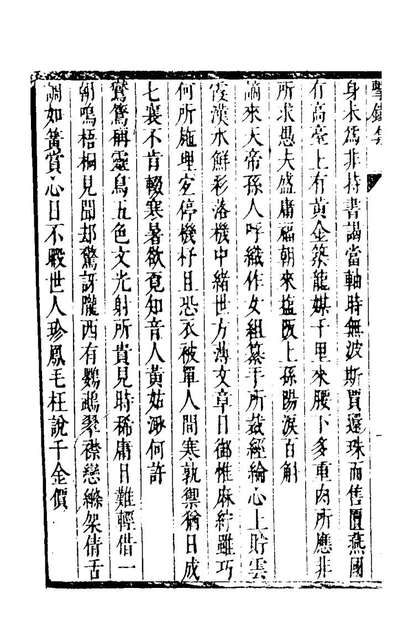 擊鐵集
身未爲非持書謁當軸時無波斯賈還珠而售匵燕國
有高臺上有黃金築龍媒千里來腰下多重肉所應非
所求愚夫盛庸福朝來塩阪上孫陽淚百斛
謫來天帝孫人呼織作女組纂于所茲經綸心上貯雲
霞漢水鮮彩落機中緖世方薄文章日御惟麻紵雖巧
何所施埋玄停機杼且恐衣被單人間寒孰禦猶日成
七襄不肯輟寒暑欲覓知音人黃姑渺何許
鸑鷟稱靈鳥五色文光射所貴見時稀庸目難輕借一
朝鳴梧桐見聞却驚訝隴西有鸚鵡翠襟戀絛架倩舌
調如簧賞心日不暇世人珍鳳毛枉說千金價